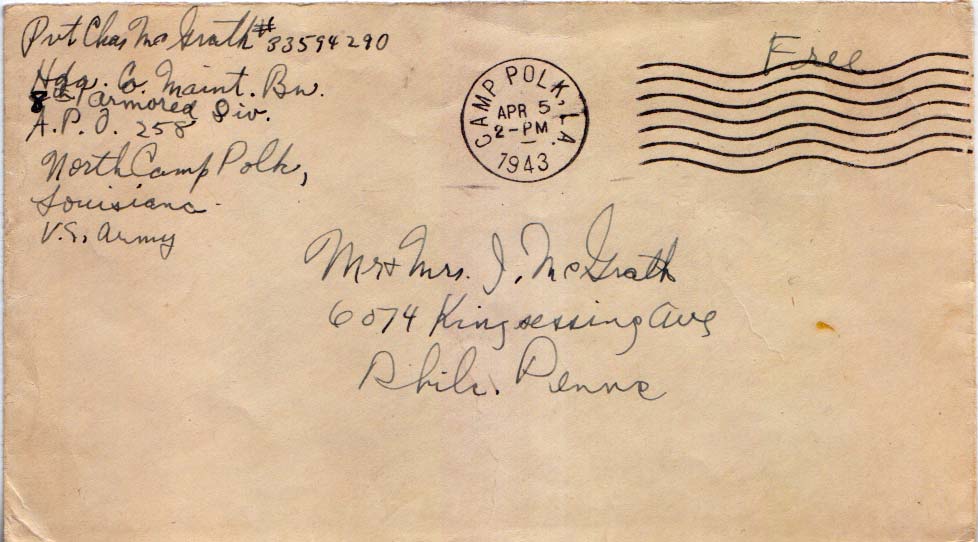 Pvt Chas McGrath # 33594290
Hdq. Co. Maint. Bn.
8th Armored Div.
A.P.O. 258
North Camp Polk,
Louisiana
U.S. Army
CAMP POLK, LA.
APR 5
2-PM
1943
Free
Mr + Mrs. J. McGrath
6074 Kingsessing Ave
Phila. Penna